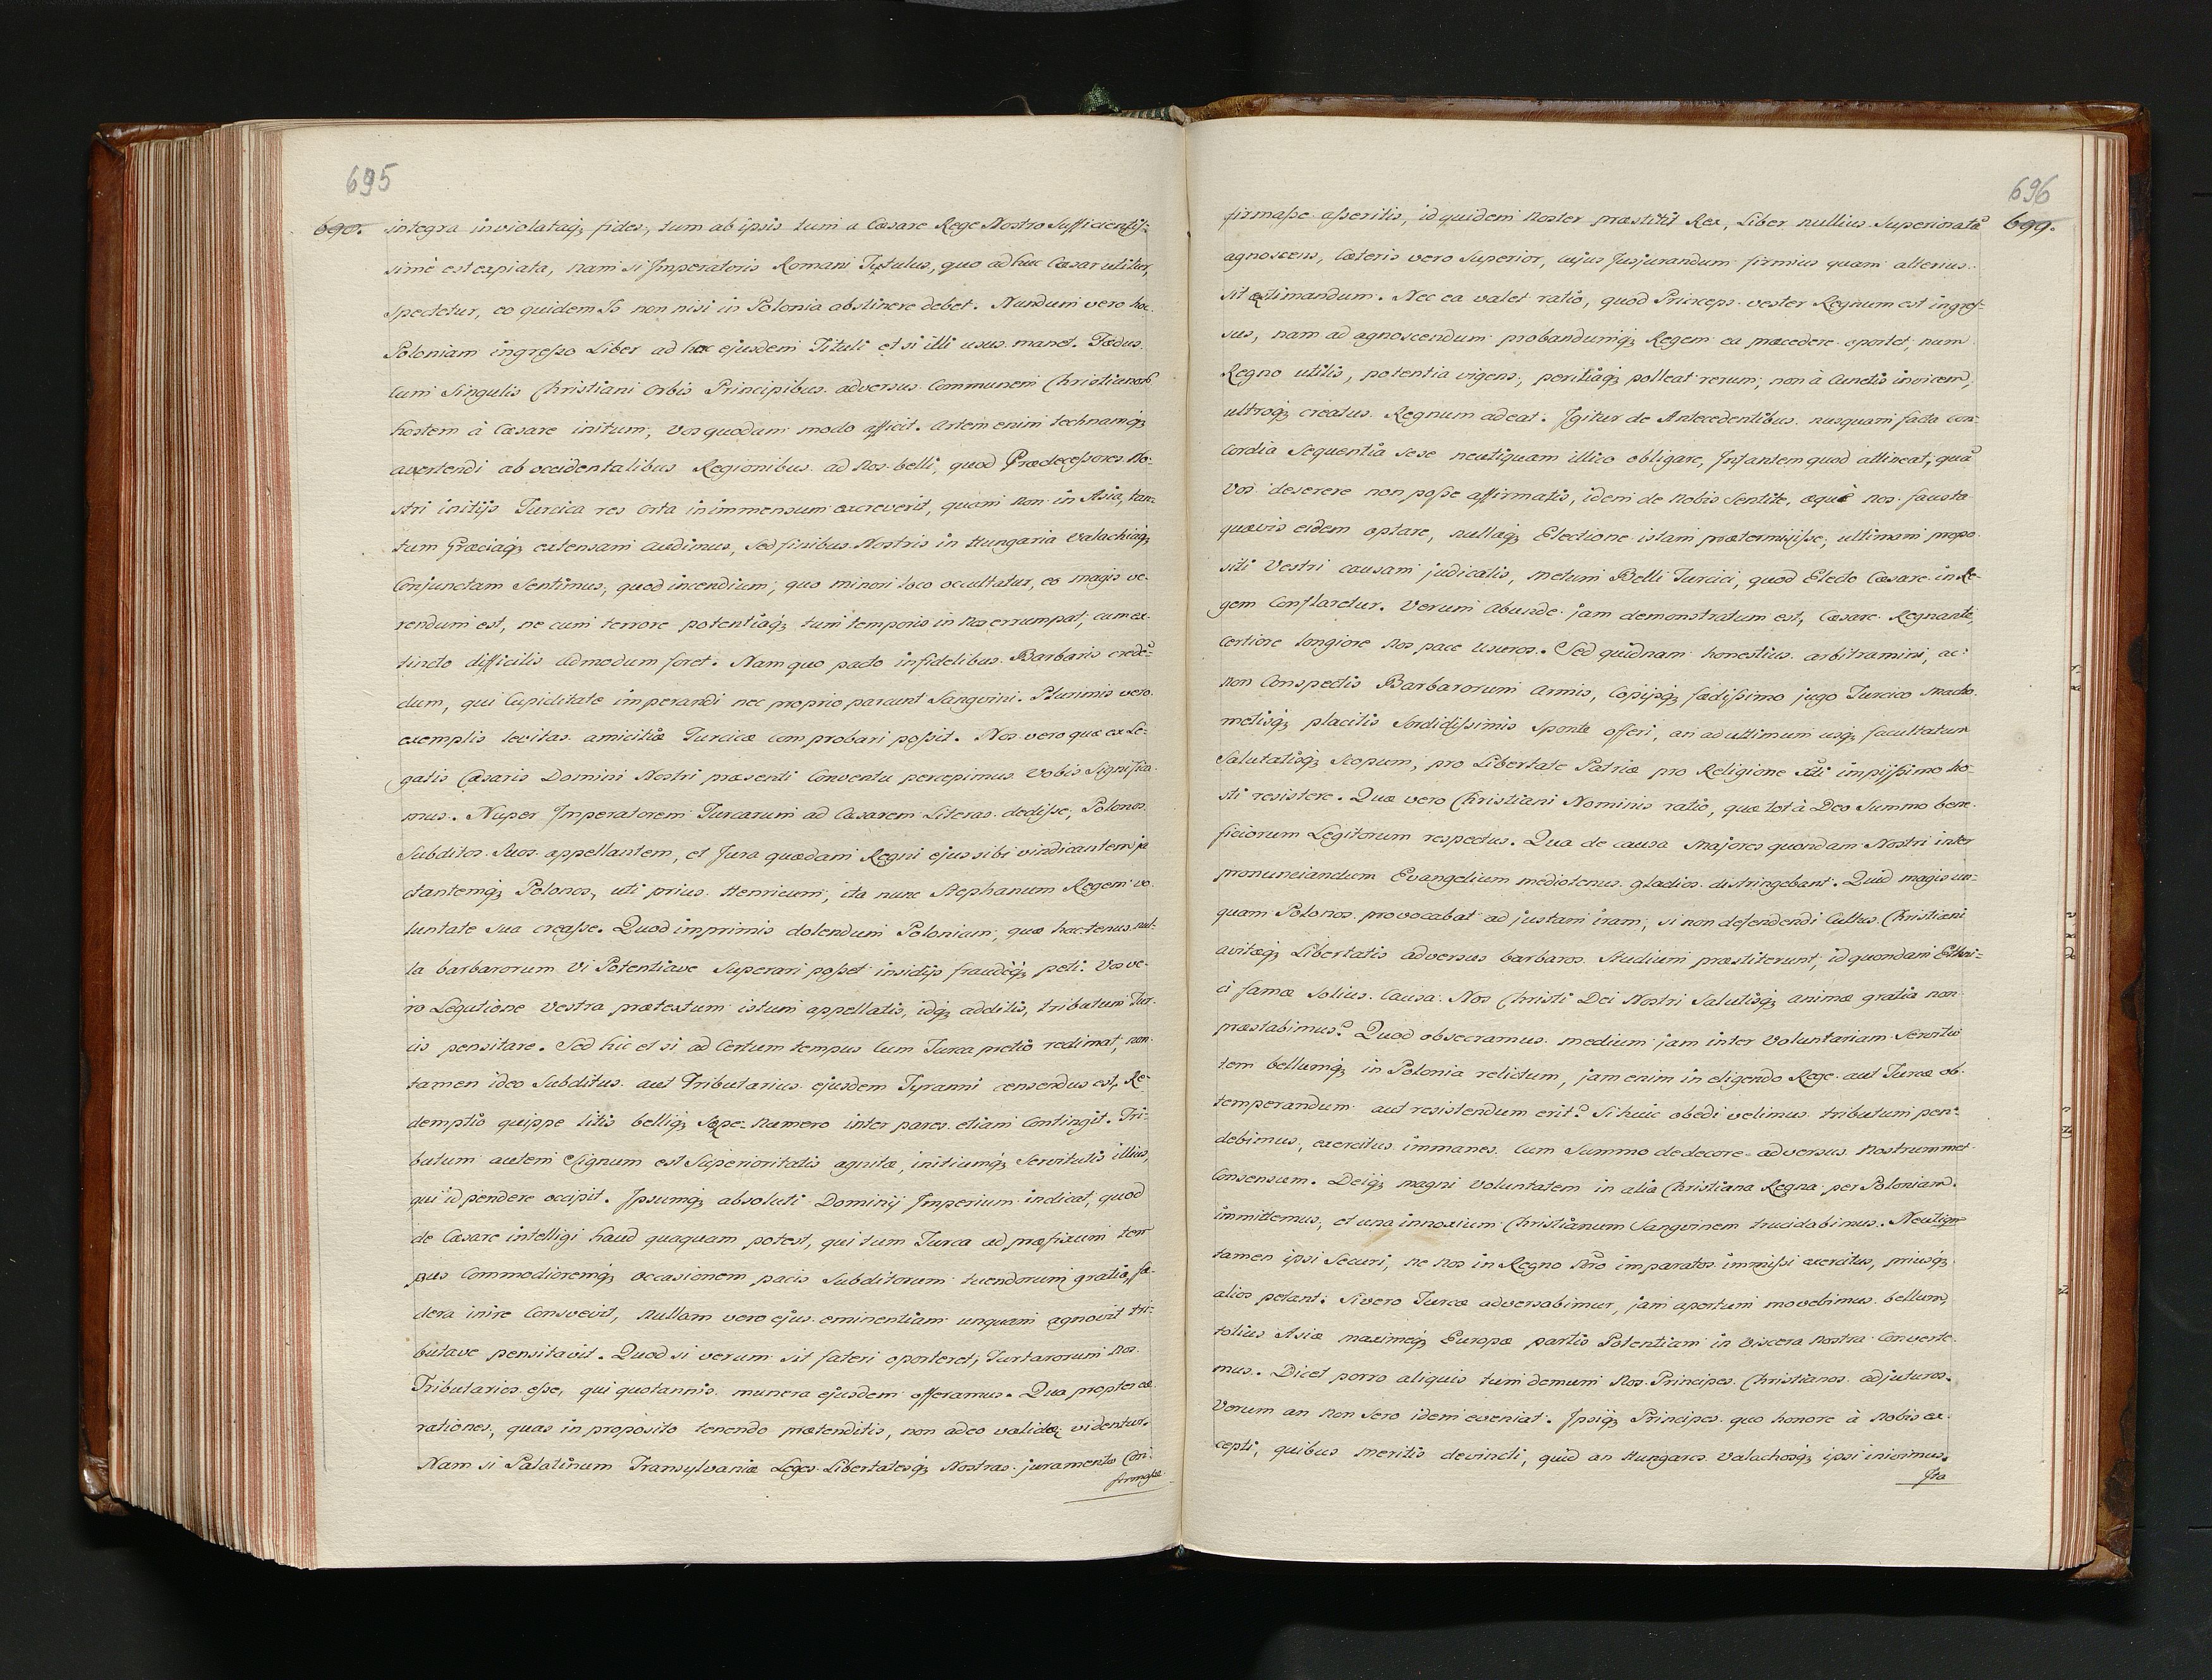 695
690. integra inviolataq; fides, tum ab ipsis tum a Cæsare Rege Nostro Sufficientis-
simè est expiata, nam si Imperatoris Romani Tytulus, quo ad huc Cæsar utitur,
spectetur, eo quidem Is non nisi in Polonia abstinere debet. Nundum vero hac
Poloniam ingresso Liber ad hæc ejusdem Tituli et si illi usus manet. Fædus
Cum Singulis Christiani Orbis Principibus adversus Communem Christianorū
hostem à Cæsare initum, Vos quodam modo afficit. Artem enim technamq;
avertendi ab occidentalibus Regionibus ad Nos belli, quod Prædecessores No-
stri initijs Turcica res Orta in immensum excreverit, quam non in Asia, tan-
tum Græciaq; extensam audimus, Sed finibus Nostris in Hungaria Valachiaq;
Conjunctam Sentimus, quod incendium, quo minori loco occultatur, eo magis ve-
rendum est, ne cum terrore potentiaq; tum temporis in Nos errumpat, cum ex-
tincto difficilis admodum foret. Nam quo pacto infidelibus Barbaris credē-
dum, qui Cupiditate imperandi nec proprio parcunt Sangvini. Plurimis vero
exemplis levitas amicitiæ Turcicæ Comprobari possit. Nos vero quæ ex Le-
gatis Cæsaris Domini Nostri præsenti Conventu percepimus Vobis Significa-
mus. Nuper Imperatorem Turcarum ad Cæsarem Literas dedisse, Polonos
Subditos Suos appellantem, et Jura quædam Regni ejus sibi vindicantem ja
ctantemq; Polonos, uti prius Henricum, ita nunc Stephanum Regem vo-
luntate sua creasse. Quod imprimis dolendum Poloniam, quæ hactenus nul-
la barbarorum Vi Potentiave Superari posset insidijs fraudeq; peti. Vos ve-
ro Legatione Vestra prætextum istum appellatis, idq; additis, tributum Tur-
cis pensitare. Sed hic et si ad Certum tempus Cum Turca pretio redimat, non
tamen ideo Subditus aut Tributarius ejusdem Tyranni censendus est, Re-
demptio quippe litis belliq; Sæpe-Numero inter pares etiam Contingit. Tri-
butum autem Signum est Superioritatis agnitæ, initiumq; Servitutis illius,
qui id pendere occipit. Ipsumq; absoluti Dominij Imperium indicat, quod
de Cæsare intelligi haud quaquam potest, qui tum Turca ad præfixum tem
pus Commodioremq; occasionem pacis Subditorum tuendorum gratia, fæ-
dera inire Consvevit, Nullam vero ejus eminentiam unquam agnovit tri-
butave pensitavit. Quod si verum sit fateri oporteret, Tartarorum Nos
Tributarios esse, qui quotannis munera ejusdem offeramus. Qua propter eæ
rationes, quas in proposito tenendo prætenditis, non adeo validæ videntur.
Nam si Palatinum Transylvaniæ Leges Libertatesq; Nostras juramento Con-
firmasse
696
699.
firmasse asseritis, id quidem Noster præstitit Rex, Liber nullius Superioratū
agnoscens, Cæteris vero Superior, Cujus Jusjurandum firmius quam alterius
sit æstimandum. Nec ea valet ratio, quod Princeps vester Regnum est ingres-
sus, nam ad agnoscendum probandumq; Regem ea præcedere oportet, num
Regno utilis, potentia vigens, peritiaq; polleat rerum, non à Cunctis invicem,
ultroq; creatus Regnum adeat. Igitur de Antecedentibus nusquam facta con-
Cordia Sequentia sese neutiquam illico obligare, Infantem quod attineat, quā
Vos deserere non posse affirmatis, idem de Nobis Sentite, æquè nos fausta
quævis eidem optare, nullaq; Electione istam prætermisisse, ultimam propo-
siti Vestri causam judicatis, metum Belli Turcici, quod Electo Cæsare in Re-
gem Conflaretur. Verum abunde jam demonstratum est, Cæsare Regnante,
Certiore longiore Nos pace Usuros. Sed quidnam honestius arbitramini, ac
non Conspectis Barbarorum Armis, Copijsq; fædissimo jugo Turcico Macho-
metisq; placitis Sordidissimis Sponte offeri, an ad ultimum usq; facultatum
Salutatisq; Scopum, pro Libertate Patriæ pro Religione Xti impijssimo ho-
sti resistere. Quæ vero Christiani Nominis ratio, quæ tot à Deo Summo bene-
ficiorum Legitorum respectus. Qua de causa Majores quondam Nostri inter
pronunciandum Evangelium mediotenus gladios distringebant. Quid magis un-
quam Polonos provocabat ad justam iram, si non defendendi Cultus Christiani
avitæq; Libertatis adversus barbaros Studium præstiterunt, id quondam Ethni-
ci famæ solius Causa. Nos Christi Dei Nostri Salutisq; animæ gratia non
præstabimus? Quod obsecramus medium jam inter Voluntariam Servitu
tem bellumq; in Polonia relictum, jam enim in eligendo Rege aut Turcæ ob-
temperandum aut resistendum erit? Si huic obedi velimus tributum pen-
debimus, exercitus immanes Cum Summo dedecore adversus Nostrummet
Consensum. Deiq; magni Voluntatem in alia Christiana Regna per Poloniam
immittemus, et una innoxium Christianum Sangvinem trucidabimus. Neutiqm
tamen ipsi Securi, ne Nos in Regno Nro imparatos immissi exercitus, priusq;
alios petant. Si vero Turcæ adversabimur, jam apertum movebimus bellum,
totius Asiæ maximeq; Europæ partis Potentiam in Viscera Nostra Converte-
mus. Dicet porro aliquis tum demum Nos Principes Christianos adjuturos.
Verum an Non Sero idem eveniat. Ipsiq; Principes quo honore à Nobis ex-
cepti, quibus meritis devincti, quid an Hungaros Valachosq; ipsi inivimus.
Ita